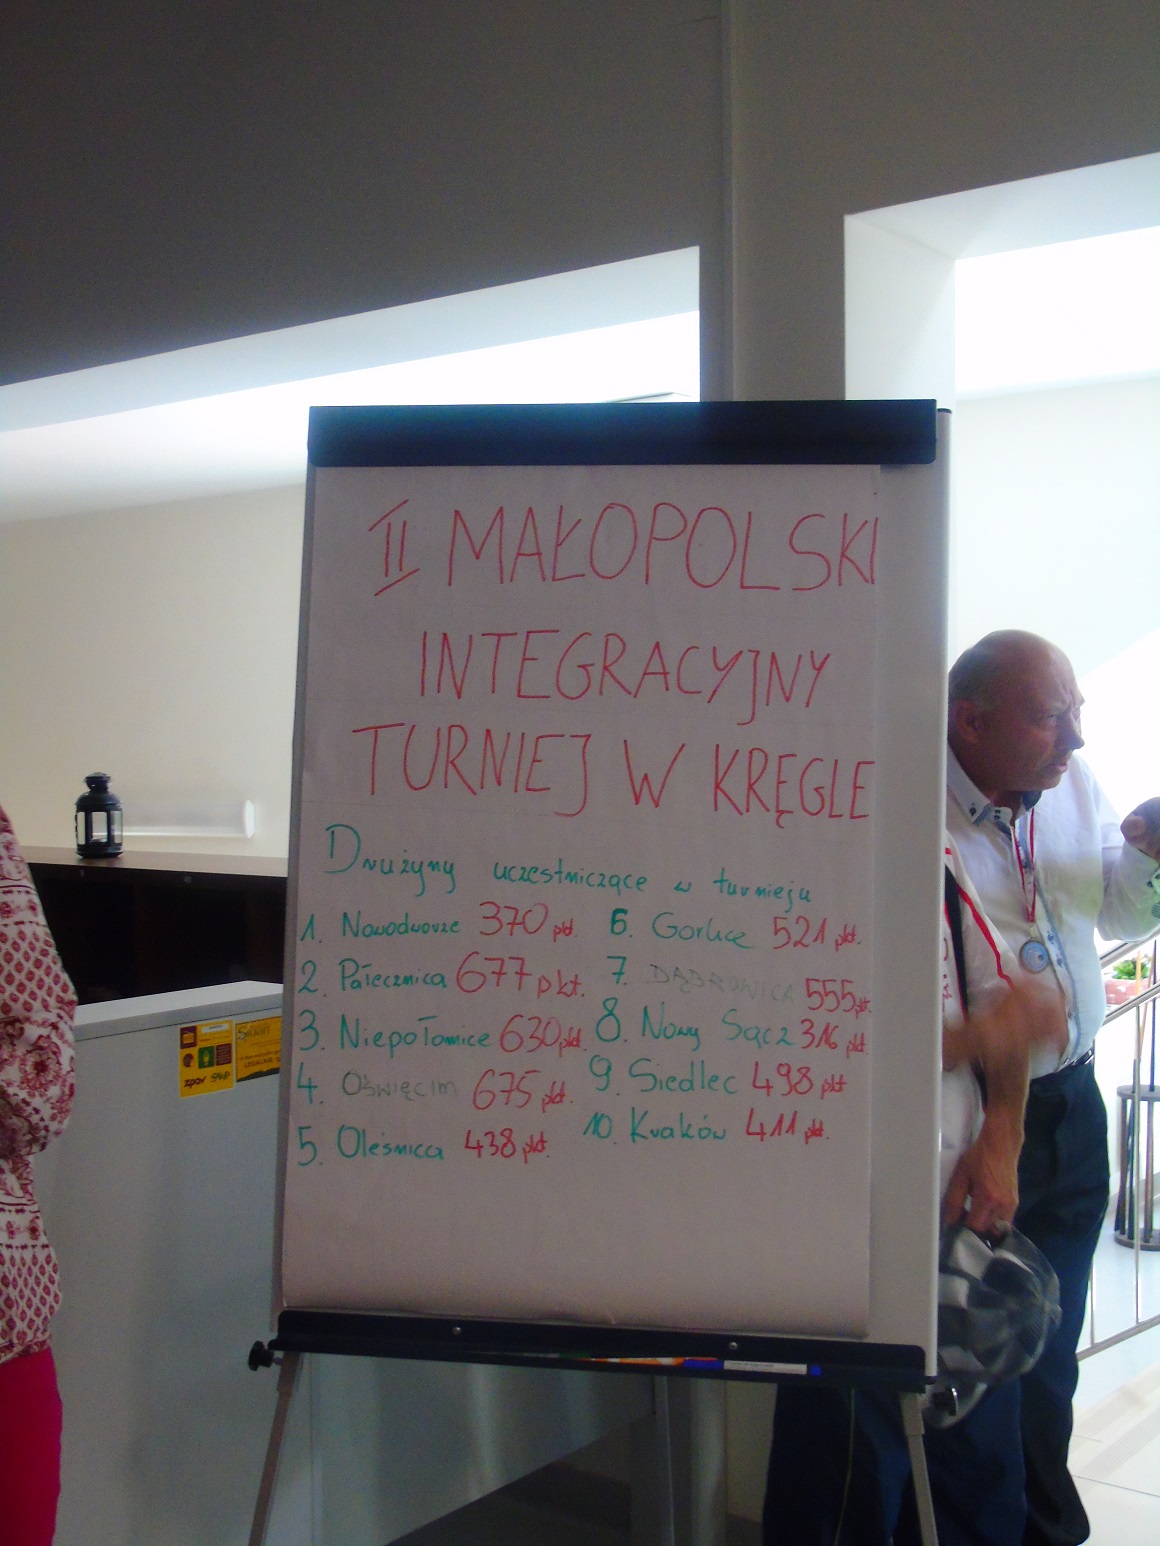 II MAŁOPOLSKI
INTEGRACYJNY
TURNIEJ W KRĘGLE
Drużyny uczestniczące w turnieju
1. Nawodworze 370 pkt.
2. Pałecznica 677 pkt.
3. Niepołomice 630 pkt.
4. OŚWIĘCIM 675 pkt.
5. Oleśnica 438 pkt.
6. Gorlice 521 pkt.
7. DĄBROWICA 555 pkt.
8. Nowy Sącz 316 pkt.
9. Siedlec 498 pkt
10. Kraków 411 pkt.